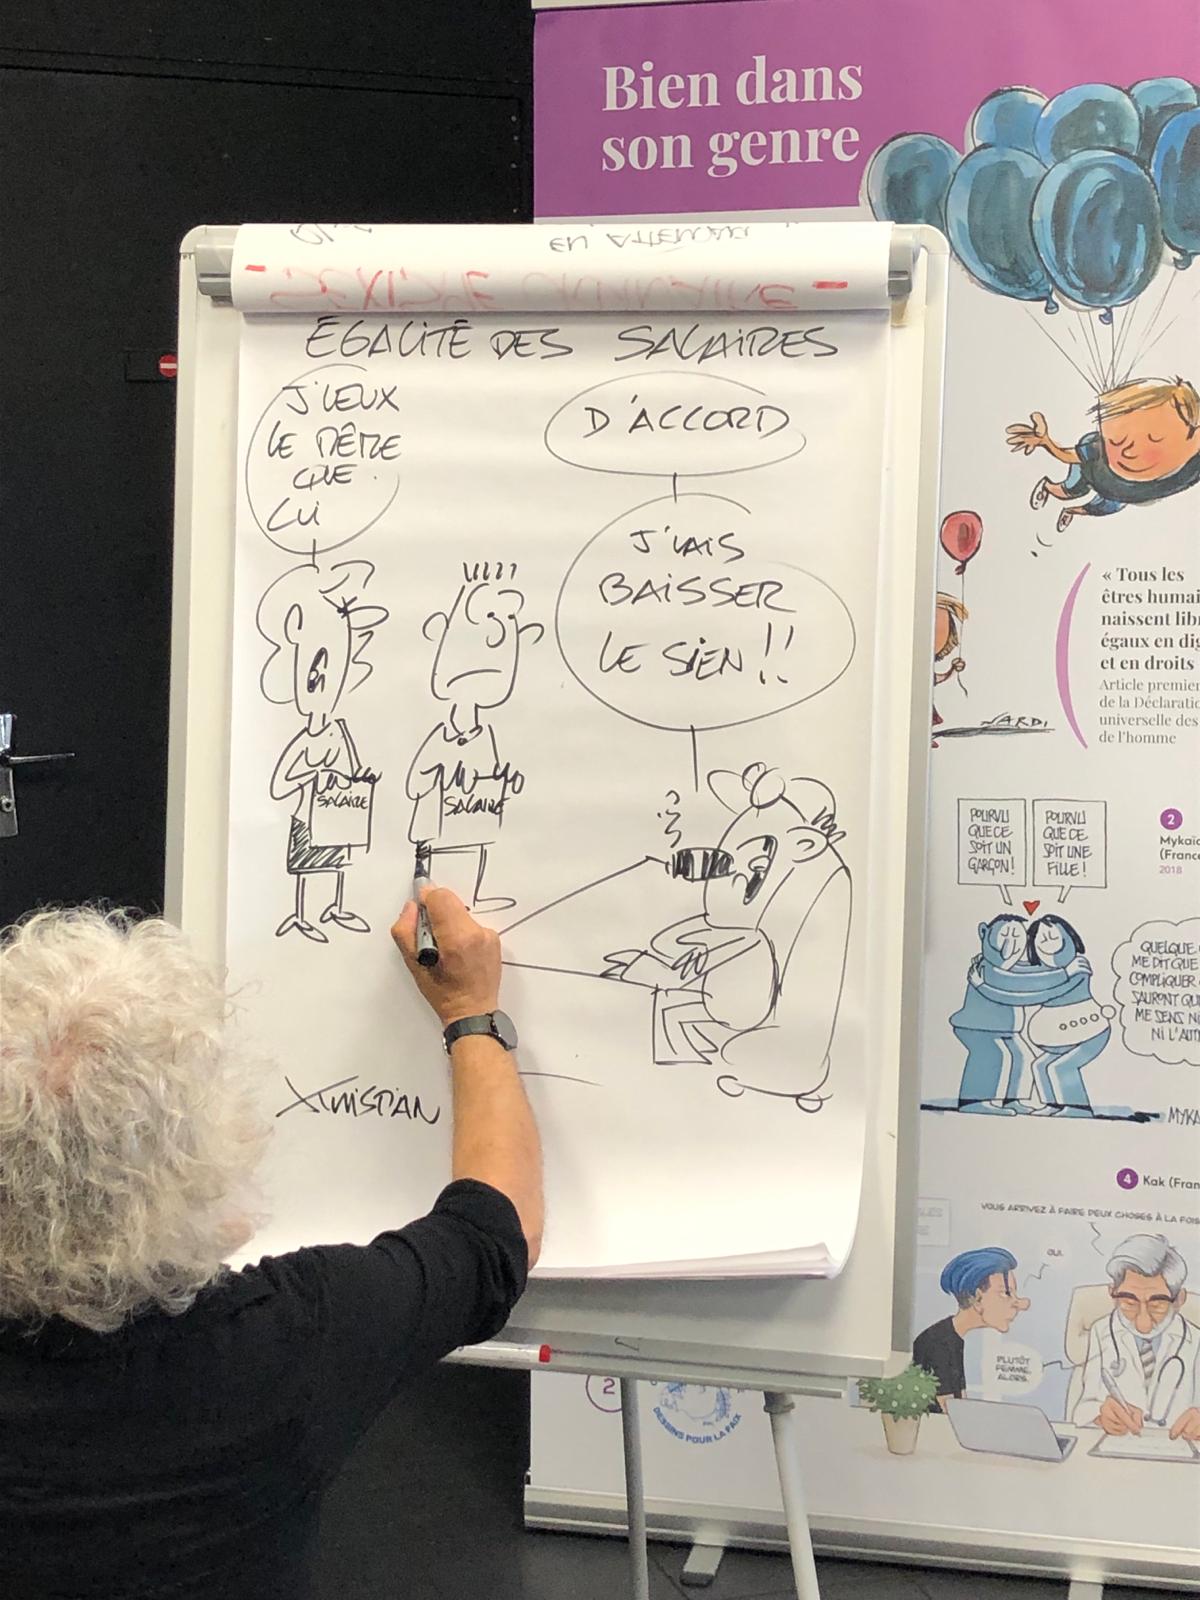 Bien dans
son genre
EN ATTENDANT
ÉGALITÉ DES SALAIRES
J'VEUX
LE MÊME
QUE
LUI
D'ACCORD
J'VAIS
BAISSER
LE SIEN !!
SALAIRE
SALAIRE
« Tous les
êtres humai
naissent libr
égaux en dig
et en droits
Article premier
de la Déclaratio
universelle des
de l'homme
NARDI
POURVU
QUE CE
SOIT UN
GARÇON !
POURVU
QUE CE
SOIT UNE
FILLE !
2
Mykaïa
(France
2018
QUELQUE
ME DIT QUE
COMPLIQUER
SAURONT QU
ME SENS NI
NI L'AUT
MYKA
4 Kak (Fran
VOUS ARRIVEZ À FAIRE DEUX CHOSES À LA FOIS
OUI.
PLUTÔT
FEMME,
ALORS.
2
DESSINS POUR LA PAIX